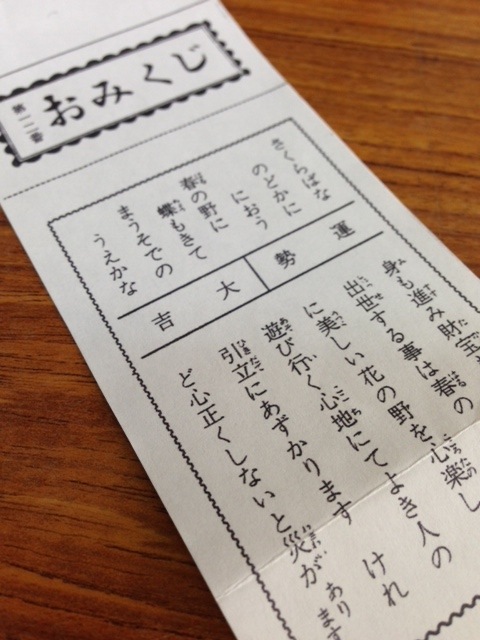 おみくじ
第一二番
さくらばな
のどかに
におう
春の野に
蝶もきて
まうそでの
うえかな
運勢
大吉
身も進み財宝
出世する事は春の
に美しい花の野を心楽し
遊び行く心地にてよき人の
引立にあずかります けれ
ど心正くしないと災が あります